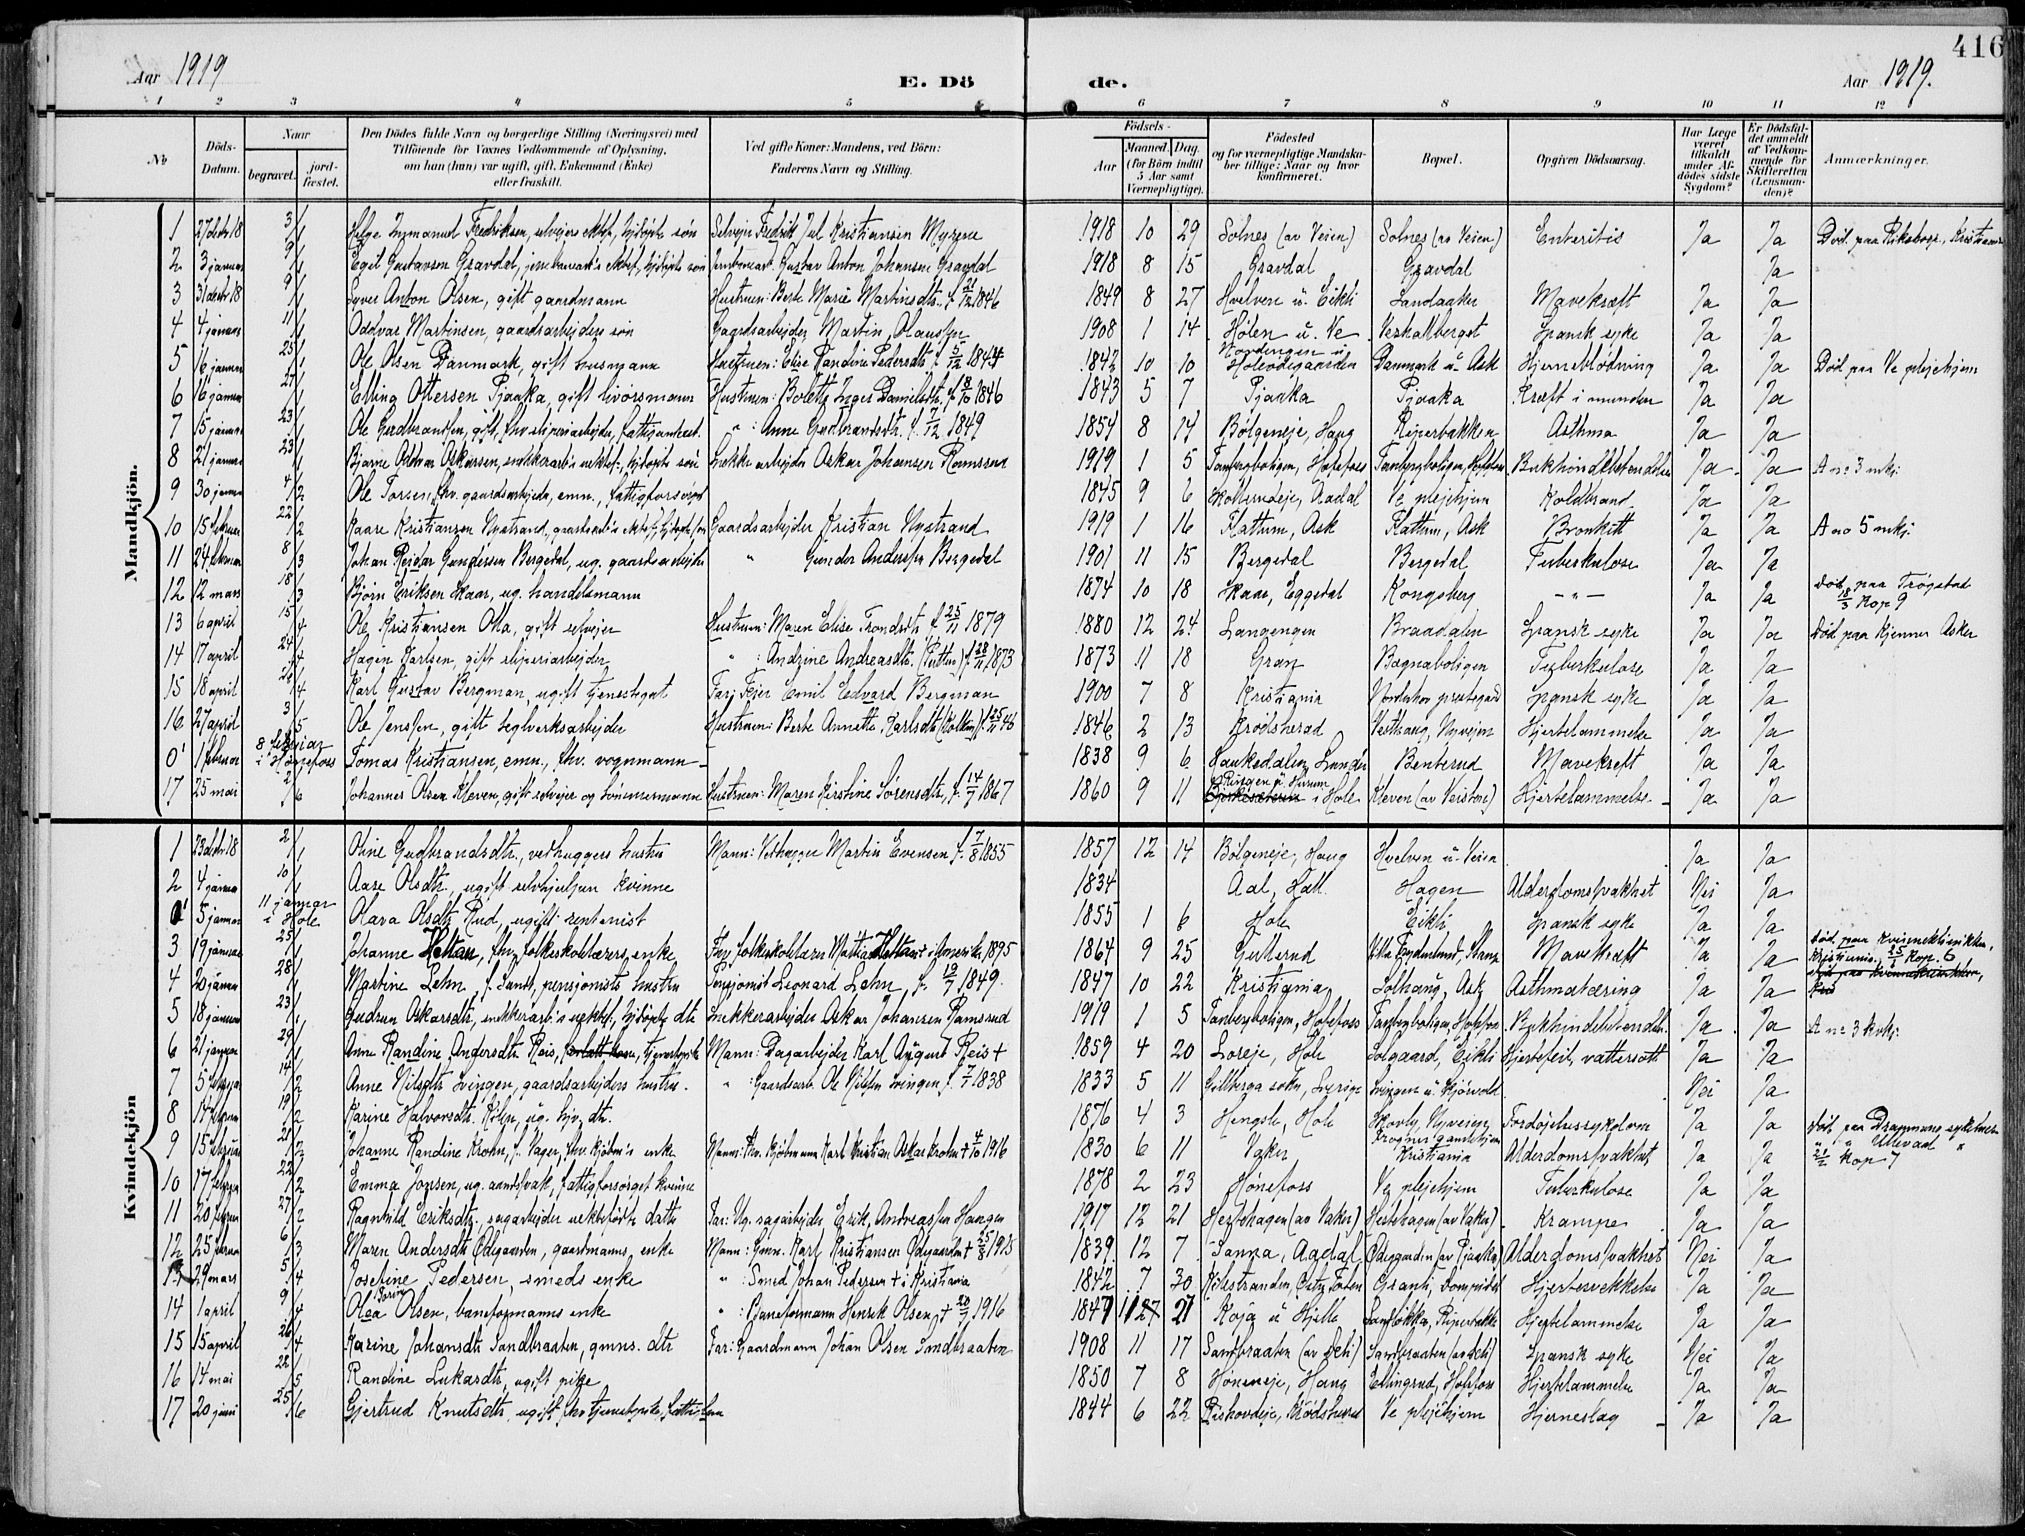 416
Aar 1919
E. Dö de.
Aar 1919.
1 2 3 4 5 6 7 8 9 10 11 12
No
Döds-Datum.
Naar
begravet.
jord-fæstet.
Den Dödes fulde Navn og borgerlige Stilling (Næringsvei) med
Tilföiende for Voxnes Vedkommende af Oplysning,
om han (hun) var ugift, gift, Enkemand (Enke)
eller fraskilt.
Ved gifte Koner: Mandens, ved Börn:
Faderens Navn og Stilling.
Födsels-
Aar
Maaned. Dag.
(for Börn indtil
5 Aar samt
Værnepligtige).
Födested
og for værnepligtige Mandska-
ber tillige: Naar og hvor
konfirmeret.
Bopæl.
Opgiven Dödsaarsag.
Har Læge
været
tilkaldt
under Af-
dödes sidste
Sygdom?
Er Dödsfal-
det anmeldt
af Vedkom-
mende for
Skifteretten
(Lensman-
den)?
Anmærkninger.
Mandkjön.
1 27 decbr 18 3/1 Helge Immanuel Fredriksen, selveiers søn Fredrik Jul Kristiansen Myrene 1918 10 29 Solnes (av Veien) Solnes (av Veien) Enteritis Ja Ja Død paa Rikshosp., Kristiania
2 3 januar 9/1 Egil Gustavsen Gravdal, søn Gustav Anton Johansen Gravdal 1918 8 15 Gravdal Gravdal Ja
3 31 decbr 18 9/1 Syver Anton Olsen, gift gaardmann Hustruen: Berte Marie Martinsdtr. f. 21/12 1846 1849 8 27 Hvelven u. Eikli Landaaker Mavekræft Ja Ja
4 4 januar 11/1 Oddvar Martinsen, gaardsarbeiders søn Gaardsarbeider Martin Olaussen 1908 1 14 Hølen u. Ve Veskallberget Spansk syke Ja Ja
5 16 januar 25/1 Ole Olsen Danmark, gift husmann Hustruen: Elise Randine Pedersdtr. f. 5/12 1844 1842 10 10 Danmark u. Ask Hjerneblødning Ja Ja Død paa Ve plejehjem
6 16 januar 27/1 Elling Ottersen Pjaaka, gift livørsmann Hustruen: Bolette Inger Danielsdtr. f. 8/10 1846 1843 5 7 Pjaaka Pjaaka Kræft i munden Ja Ja
7 15 januar 23/1 Ole Gudbrandsen, gift, fhv. sliperiarbeider, fattigunderst. " : Anne Gudbrandsdtr. f. 7/12 1849 1854 8 14 Bølgeneje, Haug Riperbakken Asthma Ja Ja
8 21 januar 23/1 Bjarne Oddvar Oskarsen, søn Snekkerarbejder Oskar Johansen Ramsrud 1919 1 5 Tanbergboligen, Hofsfoss Tanbergboligen, Hofsfoss Ja Ja A no 3 mkj:
9 30 januar 4/2 Ole Torsen, fhv. gaardsarbejder, emn., fattigforsørget 1845 9 6 Aadal Ve plejehjem Koldbrand Ja Ja
10 15 februar 22/2 Kaare Kristiansen Nystrand Gaardsarbejder Kristian Nystrand 1919 1 16 Flattum, Ask Flattum, Ask Bronkitt Ja Ja A no 5 mkj:
11 24 februar 8/3 Johan Reidar Gundersen Bergedal, ug. gaardsarbejder " Gunder Anderssen Bergedal 1901 11 15 Bergedal Bergedal Tuberkulose Ja Ja
12 12 mars 18/3 Bjørn Eriksen Skaar, ug. handelsmann 1874 10 18 Skaar, Eggedal Kongsberg — " — Ja Ja Død paa Trøgstad
18/3 Kop 9
13 6 april 15/4 Ole Kristiansen Olla, gift selvejer Hustruen: Maren Elise Trondsdtr. f. 25/11 1879 1880 12 24 Langengen Braadalen Spansk syke Ja Ja Død paa Kjenner Asker
14 17 april 24/4 Hagen Karlsen, gift sliperiarbejder " : Andrine Andreasdtr. f. 28/11 1873 1873 11 18 Gran Bægnaboligen Tuberkulose Ja Ja
15 18 april 4 Karl Gustav Bergman, ugift tjenestegut Far: Fejer Emil Edvard Bergman 1900 7 8 Kristiania Norderhov prestegaard Spansk syke Ja Ja
16 27 april 3/5 Ole Jenssen, gift teglverksarbejder Hustruen: Berte Annette Karlsdtr. 1846 2 13 Krødsherad Vesthaug, Nyvejen Hjertelammelse Ja Ja
0' 1 februar 8 februar i Hønefoss Tomas Kristiansen, emn., fhv. vognmann 1838 9 6 Haukedalen, Lunder Benterud Mavekreft Ja Ja
17 25 mai 2/6 Johannes Olsen Kleven, gift selvejer og tømmermann Hustruen: Maren Kirstine Sørensdtr., f. 14/7 1867 1860 9 11 Ringen u. Hurum i Hole Kleven (av Veisten) Hjertelammelse Ja Ja
Kvindekjön
1 23 decbr 18 2/1 Oline Gudbrandsdtr., vedhuggers hustru Mann: Vedhugger Martin Evensen f. 7/8 1855 1857 12 14 Bølgeneje, Haug Hvelven u. Veien Ja Ja
2 4 januar 10/1 Aase Olsdtr, ugift selvhjulpen kvinne 1834 Aal, Hall. Hagen Alderdomssvakhet Nei Ja
0' 5 januar 11 januar i Hole Olava Olsdtr. Rud, ugift rentenist 1855 1 6 Hole Eikli Spansk syke Ja Ja
3 19 januar 25/1 Johanne Heltan, fhv. folkeskolelærers enke Fhv. folkeskolelærer Mathias Heltan + i Amerika 1895 1864 9 25 Gullerud Mavekræft Ja Ja Død paa kvinneklinikken,
Kristiania, 25/1 Kop. 6
4 20 januar 28/1 Martine Lehn, f. Sund, pensjonists hustru Pensjonist Leonard Lehn, f. 19/7 1849. 1847 10 22 Kristiania Solhaug, Ask Asthma tæring Ja Ja
5 18 januar 23/1 Gudrun Oskarsdtr., dtr. Snekkerarbejder Oskar Johansen Ramsrud 1919 1 5 Tanbergboligen, Hofsfoss Tanbergboligen, Hofsfoss Ja Ja A no 3 kvkj:
6 21 januar 29/1 Anne Randine Andersdtr. Reis, tjenestepike Mann: Dagarbejder Karl August Reis + 1859 4 20 Loreje, Hole Solgaard, Eikli Hjertefeil, vattersott Ja Ja
7 5 februar 14/2 Anne Nilsdtr. Svingen, gaardsarbejders hustru. " : Gaardsarb. Ole Nilssen Svingen f. 7/7 1838 1833 5 11 Gillberga sokn, Sverige Svingen u. Kjørvold Nei Ja
8 14 februar 19/2 Karine Halvorsdtr. ug. 1876 4 3 Hengsle, Hole Hovly, Nyveien Fordøjelsessykdom Ja Ja
9 15 februar 21/2 Johanne Randine Krohn, f. Vager, fhv. kjøbm's enke Mann: Fhv. Kjøbmann Karl Kristian Oskar Krohn + 4/10 1916 1830 6 11 Vaker Kristiania Alderdomssvakhet Ja Ja Død paa Drammens sykehus
" " Ullevaal "
21/2 Kop 7
10 17 februar 22/2 Emma Jonsen, ug. aandssvak, fattigforsørget kvinne 1878 2 23 Hønefoss Ve plejehjem Tuberkulose Ja Ja
11 20 februar 27/2 Ragnhild Eriksdtr., sagarbejders uektefødte datter Far: Ug. sagarbejder Erik Andreassen Haugen 1917 12 21 Hestehagen (av Vaker) Hestehagen (av Vaker) Krampe Ja Ja
12 25 februar 6/3 Maren Andersdtr. Ødegaarden, gaardmanns enke Mann: Gmn. Karl Kristiansen Ødegaarden + 25/8 1918 1839 12 7 Sanna, Aadal Ødegaarden (av Pjaaka) Alderdomssvakhet Nei Ja
13 29 mars 5/4 Josefine Pedersen, smeds enke " : Smed Johan Pedersen + i Kristiania 1842 7 30 Østre Toten Granli Hjertesvekkelse Ja Ja
14 1 april 9/4 Olea Karine Olsen, baneformanns enke " : Baneformann Henrik Olsen + 20/7 1916 1847 21 Koja u. Hjelle Sandløkka, Riperbakken Hjertelammelse Ja Ja
15 15 april 26/4 Karine Johansdtr. Sandbraaten, gmns. dtr. Far: Gaardmann Johan Olsen Sandbraaten 1908 11 17 Sandbraaten Sandbraaten Spansk syke Nei Ja
16 14 mai 22/5 Randine Lukasdtr, ugift pike 1850 7 8 Høneneje, Haug Ellingrud, Hofsfoss Hjertelammelse Ja Ja
17 20 juni 25/6 Gjertrud Knutsdtr., ugift fhv. tjenestepike, fattiglem 1844 6 22 Krødsherad Ve plejehjem Hjerneslag Ja Ja